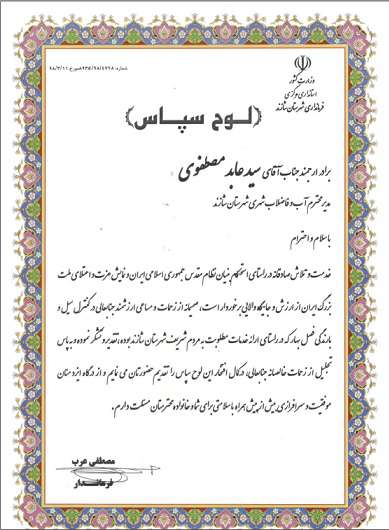 شماره: ۹۳۵/۷۸/۴۷۲۸ مورخ ۹۸/۳/۱۱
وزارت کشور
استانداری مرکزی
فرمانداری شهرستان شازند
(لوح سپاس)
برادر ارجمند جناب آقای سید عابد مصطفوی
مدیر محترم آب و فاضلاب شهری شهرستان شازند
با سلام و احترام
خدمت و تلاش صادقانه در راستای استحکام بنیان نظام مقدس جمهوری اسلامی ایران و نمایش عزت و اعتلای ملت
بزرگ ایران از ارزش و جایگاه والایی برخوردار است، صمیمانه از زحمات و مساعی ارزشمند جنابعالی در کنترل سیل و
بارندگی فصل بهار که در راستای ارائه خدمات مطلوب به مردم شریف شهرستان شازند بوده، تقدیر و تشکر نموده و به پاس
تجلیل از زحمات خالصانه جنابعالی، در کمال افتخار این لوح سپاس را تقدیم حضورتان می نمایم و از درگاه ایزد منان
موفقیت و سرافرازی بیش از پیش همراه با سلامتی برای شما و خانواده محترمتان مسئلت دارم.
مصطفی عرب
فرماندار